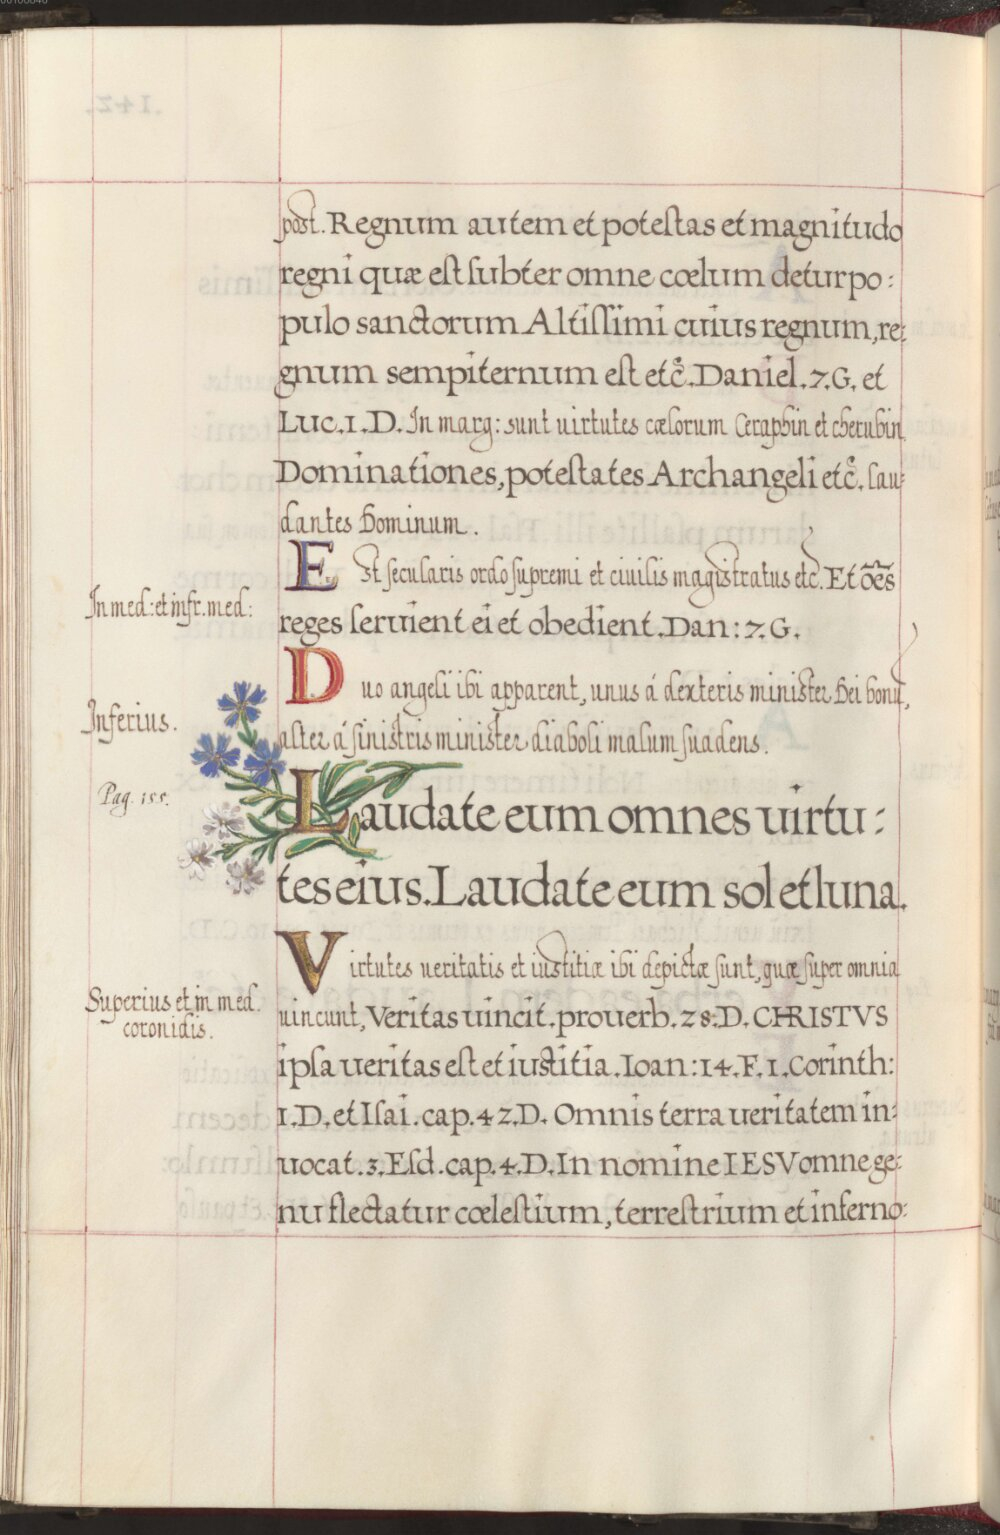 post. Regnum autem et potestas et magnitudo
regni quæ est subter omne cœlum detur po:
pulo sanctorum Altissimi cuius regnum, re:
gnum sempiternum est etc̃. Daniel. 7. G. et
Luc. 1. D. In marg: sunt uirtutes cœlorum Ceraphin et cherubin
Dominationes, potestates Archangeli etc̃. lau:
dantes Dominum.
Est secularis ordo supremi et ciuilis magistratus etc. Et oẽs
In med: et infr. med:
reges seruient ei et obedient. Dan: 7. G.
Duo angeli ibi apparent, unus á dexteris minister Dei bonū,
Inferius.
alter á sinistris minister diaboli malum suadens.
Pag. 155.
Laudate eum omnes uirtu:
tes eius. Laudate eum sol et luna.
Virtutes ueritatis et iustitiæ ibi depictæ sunt, quæ super omnia
Superius et in med.
coronidis.
uincunt, Veritas uincit. prouerb. 28. D. CHRISTVS
ipsa ueritas est et iustitia. Ioan: 14. F. 1. Corinth:
1. D. et Isai. cap. 42. D. Omnis terra ueritatem in:
uocat. 3. Esd. cap. 4. D. In nomine IESV omne ge:
nu flectatur cœlestium, terrestrium et inferno: